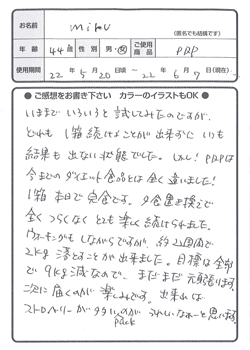 お名前 miku (匿名でも結構です)
年齢 44歳 性別 男・女 ご使用商品 PRP
使用期間 22年5月20日頃 ~ 22年6月7日(現在)
●ご感想をお書き下さい カラーのイラストもOK●
いままでいろいろと試してみたのですが、
どれも1箱続けることが出来ずに いつも
結果も出ない状態でした。しかし!PRPは
今までのダイエット食品とは全く違いました!
1箱 本日で完食です。夕食置き換えで
全くつらくなくとても楽しく続けられました。
ウォーキングもしながらですが、約2週間で
2kg落とすことが出来ました。目標は全部
で9kg減なので、まだまだ頑張ります。
次に届くのが楽しみです。出来れば
ストロベリーが多いのが うれしいなぁーと思います。
pack